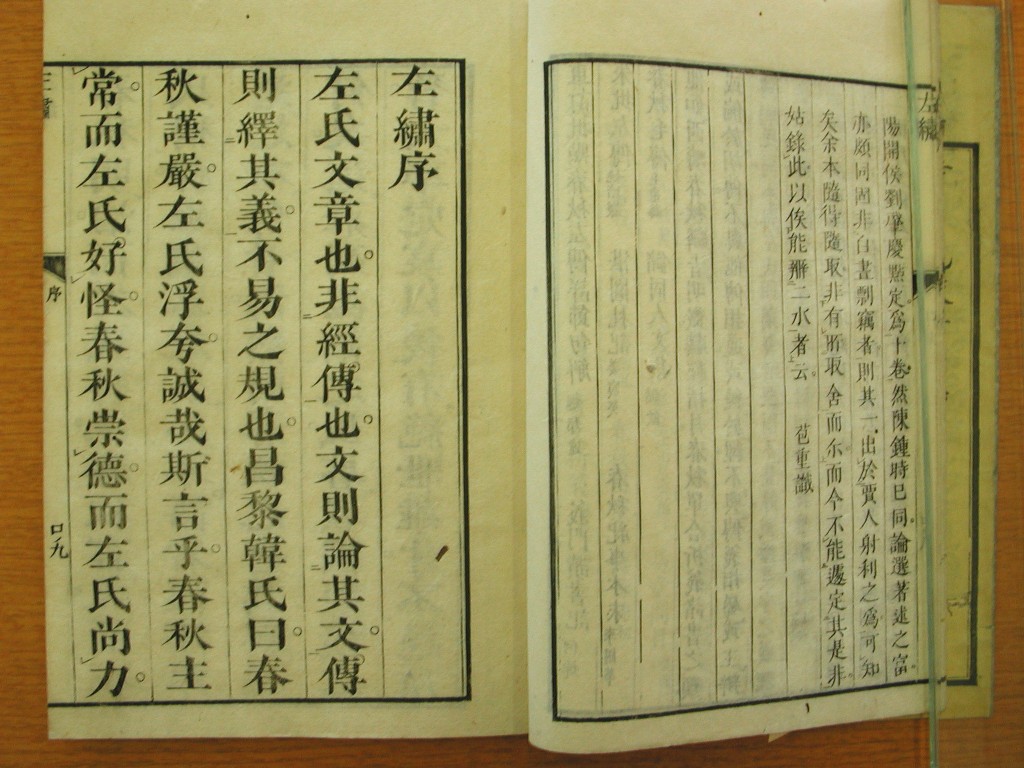 左繡
陽開侯劉肇慶點定爲十卷然陳鍾時已同論選著述之富
亦頗同固非白晝剽竊者則其一出於賈人射利之爲可知
矣余本隨得隨取非有所取舍而尔而今不能遽定其是非
姑錄此以俟能辨二水者云 苞重識
左繡序
左氏文章也非經傳也文則論其文傳
則繹其義不易之規也昌黎韓氏曰春
秋謹嚴左氏浮夸誠哉斯言乎春秋主
常而左氏好怪春秋崇德而左氏尚力
序
口九